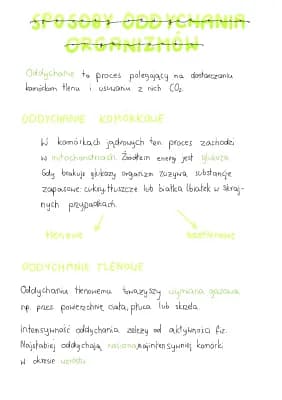 SPOSOBY ODDYCHANIA
ORGANIZMÓW
Oddychanie to proces polegający na dostarczaniu
komórkom tlenu i usuwaniu z nich CO₂.
ODDYCHANIE KOMÓRKOWE
W komórkach jądrowych ten proces zachodzi
w mitochondriach. Źródłem energ jest glukoza.
Gdy brakuje glukozy organizm zużywa substancje
zapasowe: cukry, tłuszcze lub białka (białek w skraj-
nych przypadkach.
tlenowe beztlenowe
ODDYCHANIE TLENOWE
Oddychaniu tlenowemu towarzyszy wymiana gazowa
np. przez powierzchnię ciała, płuca lub skrzela.
Intensywność oddychania zależy od aktywności fiz.
Najsłabiej oddychają nasiona, najintensywniej komórki
w okresie wzrostu.